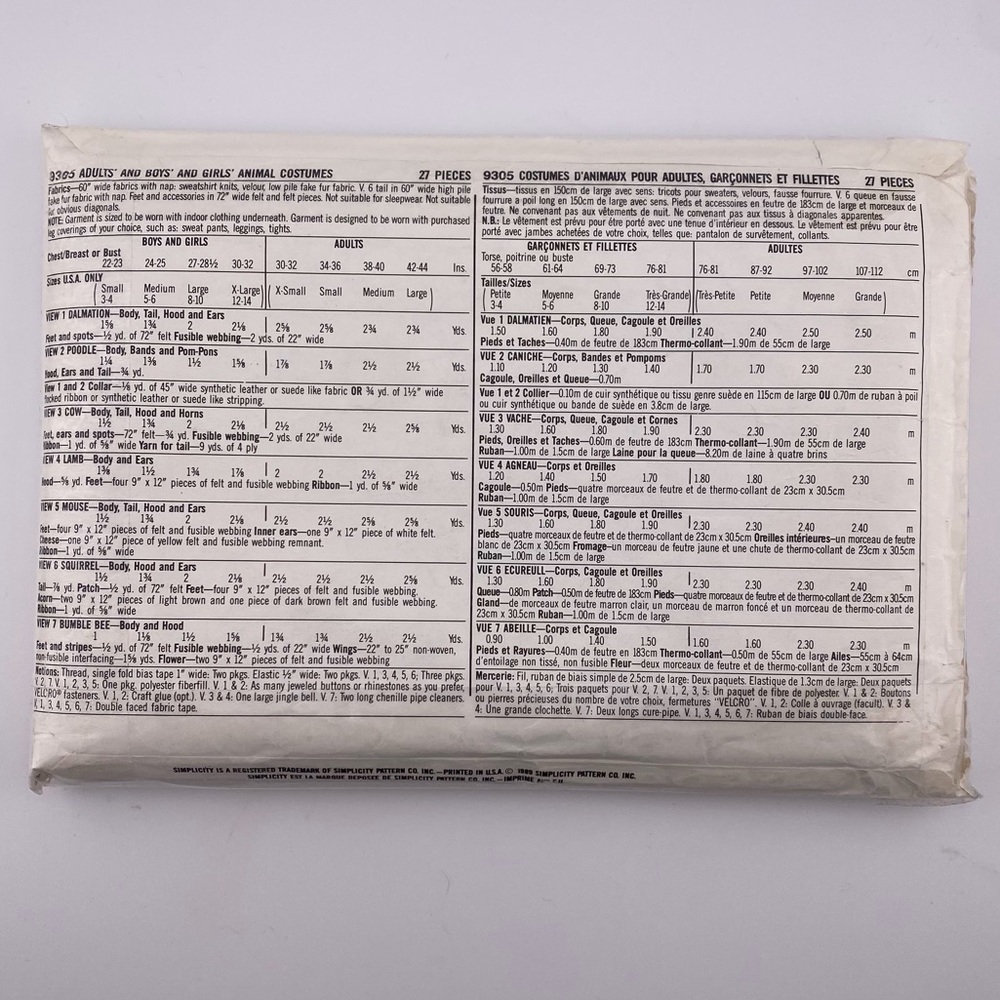 9305 ADULTS' AND BOYS' AND GIRLS' ANIMAL COSTUMES 27 PIECES
Fabrics—60" wide fabrics with nap: sweatshirt knits, velour, low pile fake fur fabric. V. 6 tail in 60" wide high pile
fake fur fabric with nap. Feet and accessories in 72" wide felt and felt pieces. Not suitable for sleepwear. Not suitable
for obvious diagonals.
NOTE: Garment is sized to be worn with indoor clothing underneath. Garment is designed to be worn with purchased
leg coverings of your choice, such as: sweat pants, leggings, tights.
BOYS AND GIRLS ADULTS
Chest/Breast or Bust
22-23 24-25 27-28½ 30-32 30-32 34-36 38-40 42-44 Ins.
Sizes U.S.A. ONLY
(Small Medium Large X-Large) (X-Small Small Medium Large)
3-4 5-6 8-10 12-14
VIEW 1 DALMATION—Body, Tail, Hood and Ears
1⅝ 1¾ 2 2⅛ 2⅝ 2⅝ 2¾ 2¾ Yds.
Feet and spots—½ yd. of 72" felt Fusible webbing—2 yds. of 22" wide
VIEW 2 POODLE—Body, Bands and Pom-Pons
1¼ 1⅜ 1½ 1⅝ 1⅞ 1⅞ 2½ 2½ Yds.
Hood, Ears and Tail—¾ yd.
View 1 and 2 Collar—⅛ yd. of 45" wide synthetic leather or suede like fabric OR ¾ yd. of 1½" wide
flocked ribbon or synthetic leather or suede like stripping.
VIEW 3 COW—Body, Tail, Hood and Horns
1½ 1¾ 2 2⅛ 2½ 2½ 2½ 2⅝ Yds.
Feet, ears and spots—72" felt—¾ yd. Fusible webbing—2 yds. of 22" wide
Ribbon—1 yd. of ⅝" wide Yarn for tail—9 yds. of 4 ply
VIEW 4 LAMB—Body and Ears
1⅜ 1½ 1¾ 1⅞ 2 2 2½ 2½ Yds.
Hood—⅝ yd. Feet—four 9" x 12" pieces of felt and fusible webbing Ribbon—1 yd. of ⅝" wide
VIEW 5 MOUSE—Body, Tail, Hood and Ears
1½ 1¾ 2 2⅛ 2½ 2½ 2⅝ 2⅝ Yds.
Feet—four 9" x 12" pieces of felt and fusible webbing Inner ears—one 9" x 12" piece of white felt.
Cheese—one 9" x 12" piece of yellow felt and fusible webbing remnant.
Ribbon—1 yd. of ⅝" wide
VIEW 6 SQUIRREL—Body, Hood and Ears
1½ 1¾ 2 2⅛ 2½ 2½ 2½ 2⅝ Yds.
Tail—⅞ yd. Patch—½ yd. of 72" felt Feet—four 9" x 12" pieces of felt and fusible webbing.
Acorn—two 9" x 12" pieces of light brown and one piece of dark brown felt and fusible webbing.
Ribbon—1 yd. of ⅝" wide
VIEW 7 BUMBLE BEE—Body and Hood
1 1⅛ 1½ 1⅝ 1¾ 1¾ 2½ 2½ Yds.
Feet and stripes—½ yd. of 72" felt Fusible webbing—½ yd. of 22" wide Wings—22" to 25" non-woven,
non-fusible interfacing—1⅝ yds. Flower—two 9" x 12" pieces of felt and fusible webbing
Notions: Thread, single fold bias tape 1" wide: Two pkgs. Elastic ½" wide: Two pkgs. V. 1, 3, 4, 5, 6; Three pkgs.
V. 2, 7. V. 1, 2, 3, 5: One pkg. polyester fiberfill. V. 1 & 2: As many jeweled buttons or rhinestones as you prefer,
VELCRO® fasteners. V. 1, 2: Craft glue (opt.). V. 3 & 4: One large jingle bell. V. 7: Two long chenille pipe cleaners.
V. 1, 3, 4, 5, 6, 7: Double faced fabric tape.
9305 COSTUMES D'ANIMAUX POUR ADULTES, GARÇONNETS ET FILLETTES 27 PIECES
Tissus—tissus en 150cm de large avec sens: tricots pour sweaters, velours, fausse fourrure. V. 6 queue en fausse
fourrure a poil long en 150cm de large avec sens. Pieds et accessoires en feutre de 183cm de large et morceaux de
feutre. Ne convenant pas aux vêtements de nuit. Ne convenant pas aux tissus à diagonales apparentes.
N.B.: Le vêtement est prévu pour être porté avec une tenue d'intérieur en dessous. Le vêtement est prévu pour être
porté avec jambes achetées de votre choix, telles que: pantalon de survêtement, collants.
GARÇONNETS ET FILLETTES ADULTES
Torse, poitrine ou buste
56-58 61-64 69-73 76-81 76-81 87-92 97-102 107-112 cm
Tailles/Sizes
(Petite Moyenne Grande Très-Grande) (Très-Petite Petite Moyenne Grande)
3-4 5-6 8-10 12-14
Vue 1 DALMATIEN—Corps, Queue, Cagoule et Oreilles
1.50 1.60 1.80 1.90 2.40 2.40 2.50 2.50 m
Pieds et Taches—0.40m de feutre de 183cm Thermo-collant—1.90m de 55cm de large
VUE 2 CANICHE—Corps, Bandes et Pompoms
1.10 1.20 1.30 1.40 1.70 1.70 2.30 2.30 m
Cagoule, Oreilles et Queue—0.70m
Vue 1 et 2 Collier—0.10m de cuir synthétique ou tissu genre suède en 115cm de large OU 0.70m de ruban à poil
ou cuir synthétique ou bande de suède en 3.8cm de large.
VUE 3 VACHE—Corps, Queue, Cagoule et Cornes
1.30 1.60 1.80 1.90 2.30 2.30 2.30 2.40 m
Pieds, Oreilles et Taches—0.60m de feutre de 183cm Thermo-collant—1.90m de 55cm de large
Ruban—1.00m de 1.5cm de large Laine pour la queue—8.20m de laine à quatre brins
VUE 4 AGNEAU—Corps et Oreilles
1.20 1.40 1.50 1.70 1.80 1.80 2.30 2.30 m
Cagoule—0.50m Pieds—quatre morceaux de feutre et de thermo-collant de 23cm x 30.5cm
Ruban—1.00m de 1.5cm de large
Vue 5 SOURIS—Corps, Queue, Cagoule et Oreilles
1.30 1.60 1.80 1.90 2.30 2.30 2.40 2.40 m
Pieds—quatre morceaux de feutre et de thermo-collant de 23cm x 30.5cm Oreilles intérieures—un morceau de feutre
blanc de 23cm x 30.5cm Fromage—un morceau de feutre jaune et une chute de thermo-collant de 23cm x 30.5cm
Ruban—1.00m de 1.5cm de large
VUE 6 ECUREULL—Corps, Cagoule et Oreilles
1.30 1.60 1.80 1.90 2.30 2.30 2.30 2.40 m
Queue—0.80m Patch—0.50m de feutre de 183cm Pieds—quatre morceaux de feutre et de thermo-collant de 23cm x 30.5cm
Gland—de morceaux de feutre marron clair, un morceau de marron foncé et un morceau de thermo-collant de
23cm x 30.5cm Ruban—1.00m de 1.5cm de large
VUE 7 ABEILLE—Corps et Cagoule
0.90 1.00 1.40 1.50 1.60 1.60 2.30 2.30 m
Pieds et Rayures—0.40m de feutre en 183cm Thermo-collant—0.50m de 55cm de large Ailes—55cm à 64cm
d'entoilage non tissé, non fusible Fleur—deux morceaux de feutre et de thermo-collant de 23cm x 30.5cm
Mercerie: Fil, ruban de biais simple de 2.5cm de large: Deux paquets. Elastique de 1.3cm de large: Deux paquets
pour V. 1, 3, 4, 5, 6; Trois paquets pour V. 2, 7. V. 1, 2, 3, 5: Un paquet de fibre de polyester. V. 1 & 2: Boutons
ou pierres précieuses du nombre de votre choix, fermetures "VELCRO". V. 1, 2: Colle à ouvrage (facult.). V. 3 &
4: Une grande clochette. V. 7: Deux longs cure-pipe. V. 1, 3, 4, 5, 6, 7: Ruban de biais double-face.
SIMPLICITY IS A REGISTERED TRADEMARK OF SIMPLICITY PATTERN CO. INC.—PRINTED IN U.S.A. © 1989 SIMPLICITY PATTERN CO. INC.
SIMPLICITY EST LA MARQUE DEPOSEE DE SIMPLICITY PATTERN CO. INC.—IMPRIME